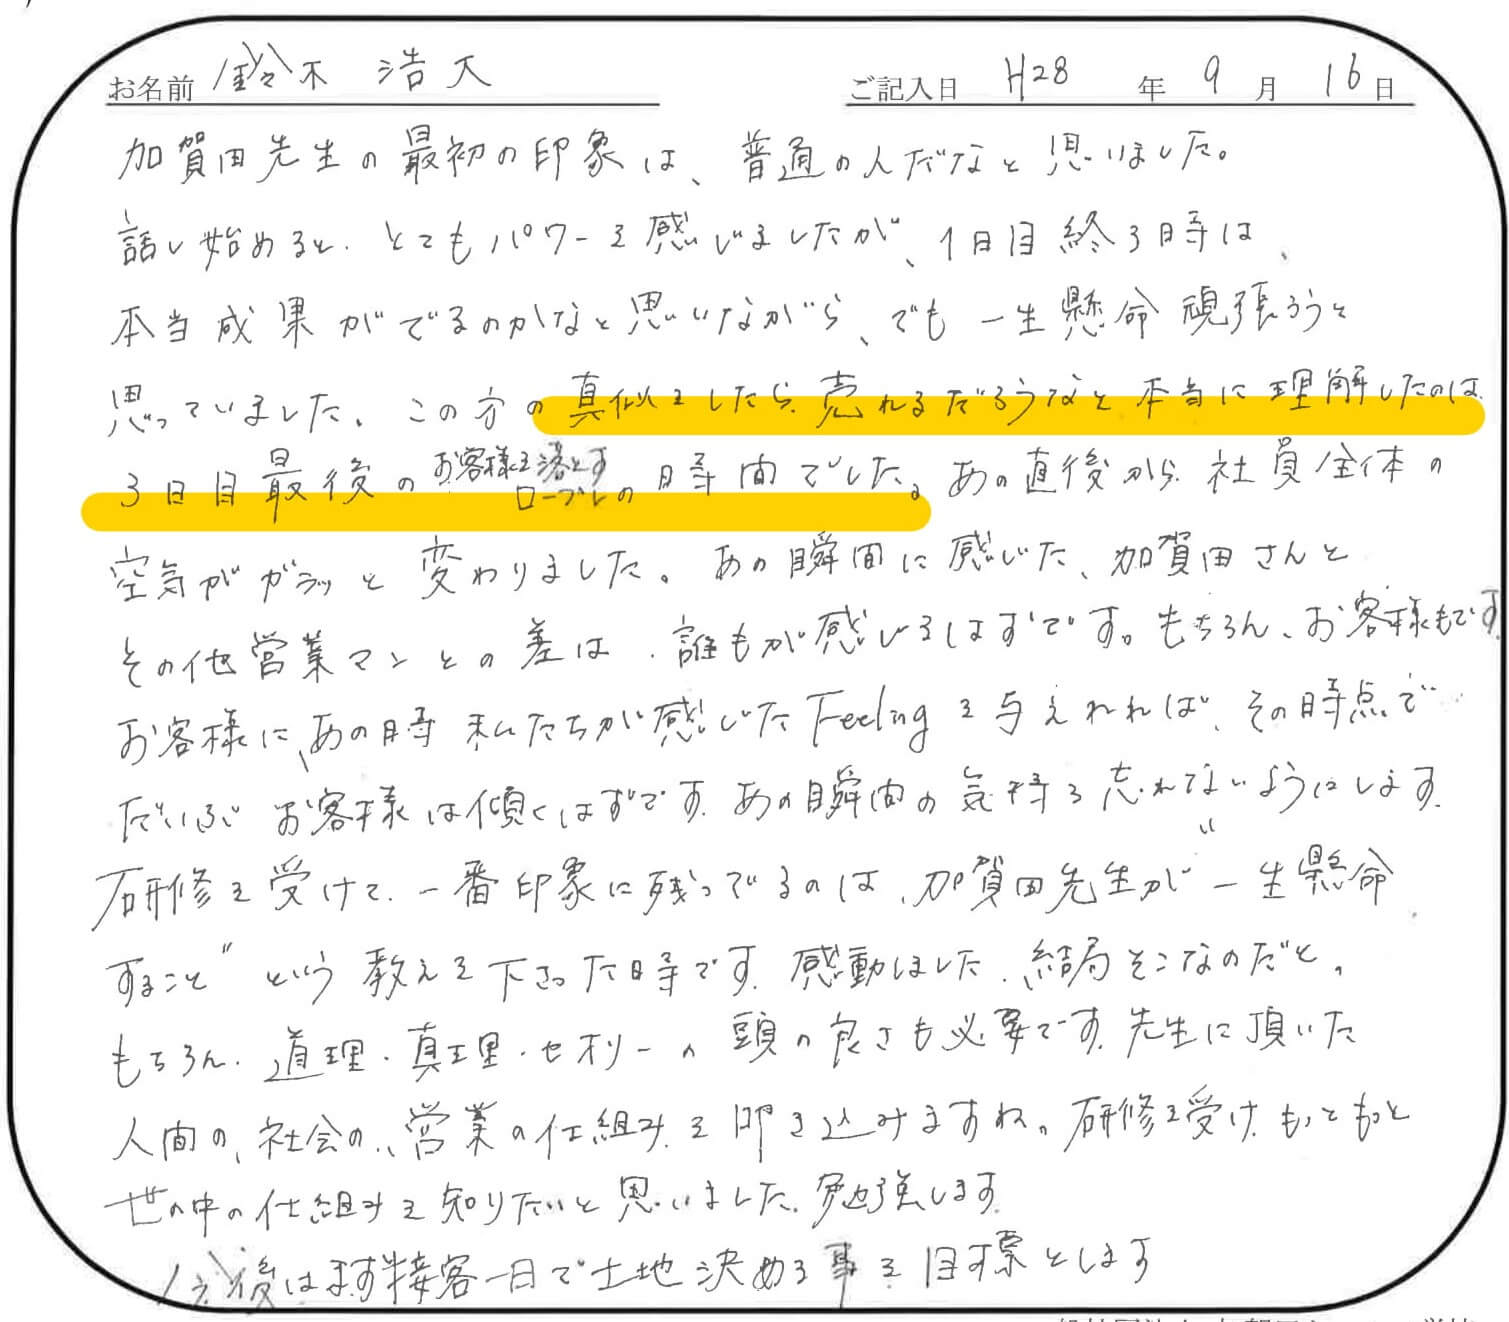 お名前 鈴木 浩大 ご記入日 H28 年 9 月 16 日
加賀田先生の最初の印象は、普通の人だなと思いました。
話し始めると、とてもパワーを感じましたが、1日目終る時は、
本当成果がでるのかなと思いながら、でも一生懸命頑張ろうと
思っていました。この方の真似をしたら売れるだろうなと本当に理解したのは、
3日目最後のお客様を落とすロープレの時間でした。あの直後から社員全体の
空気がガラッと変わりました。あの瞬間に感じた、加賀田さんと
その他営業マンとの差は、誰もが感じるはずです。もちろん、お客様もです。
お客様に、あの時私たちが感じたFeelingを与えれれば、その時点で
だいぶお客様は傾くはずです。あの瞬間の気持ち忘れてないようにします。
研修を受けて、一番印象に残ってでるのは、加賀田先生が"一生懸命
すること"という教えを下さった時です。感動しました、結局そこなのだと。
もちろん、道理・真理・セオリーの頭の良さも必要です。先生に頂いた
人間の、社会の、営業の仕組みを叩き込みますね。研修を受け、もっともっと
世の中の仕組みを知りたいと思いました。勉強します。
今後はまず接客一日で土地決める事を目標とします